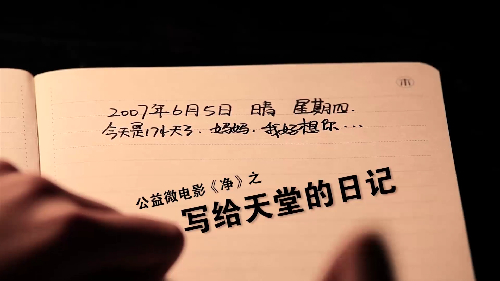 2007年6月5日 晴 星期四.
今天是174天了. 妈妈. 我好想你…
公益微电影《净》之
写给天堂的日记